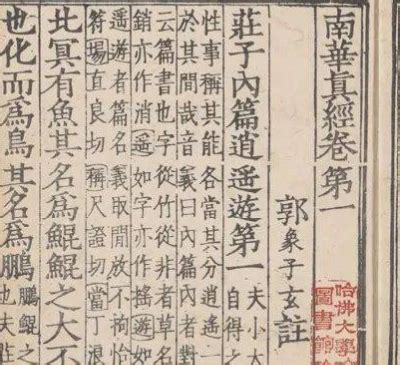 南華眞經卷第一
郭象子玄註
哈佛大學
圖書館
莊子內篇逍遙遊第一
夫小大
自得之
性事稱其能各當其分逍遙
於其間哉音義曰內篇內者對
云篇書也字從竹從非者草名
銷亦作消遙如字亦作搖遊如
遙遊者篇名義取閒放不拘怡
符場直良切稱尺證切當丁浪
北冥有魚其名爲鯤鯤之大不
也化而爲鳥其名爲鵬
鵬鯤之
也夫莊